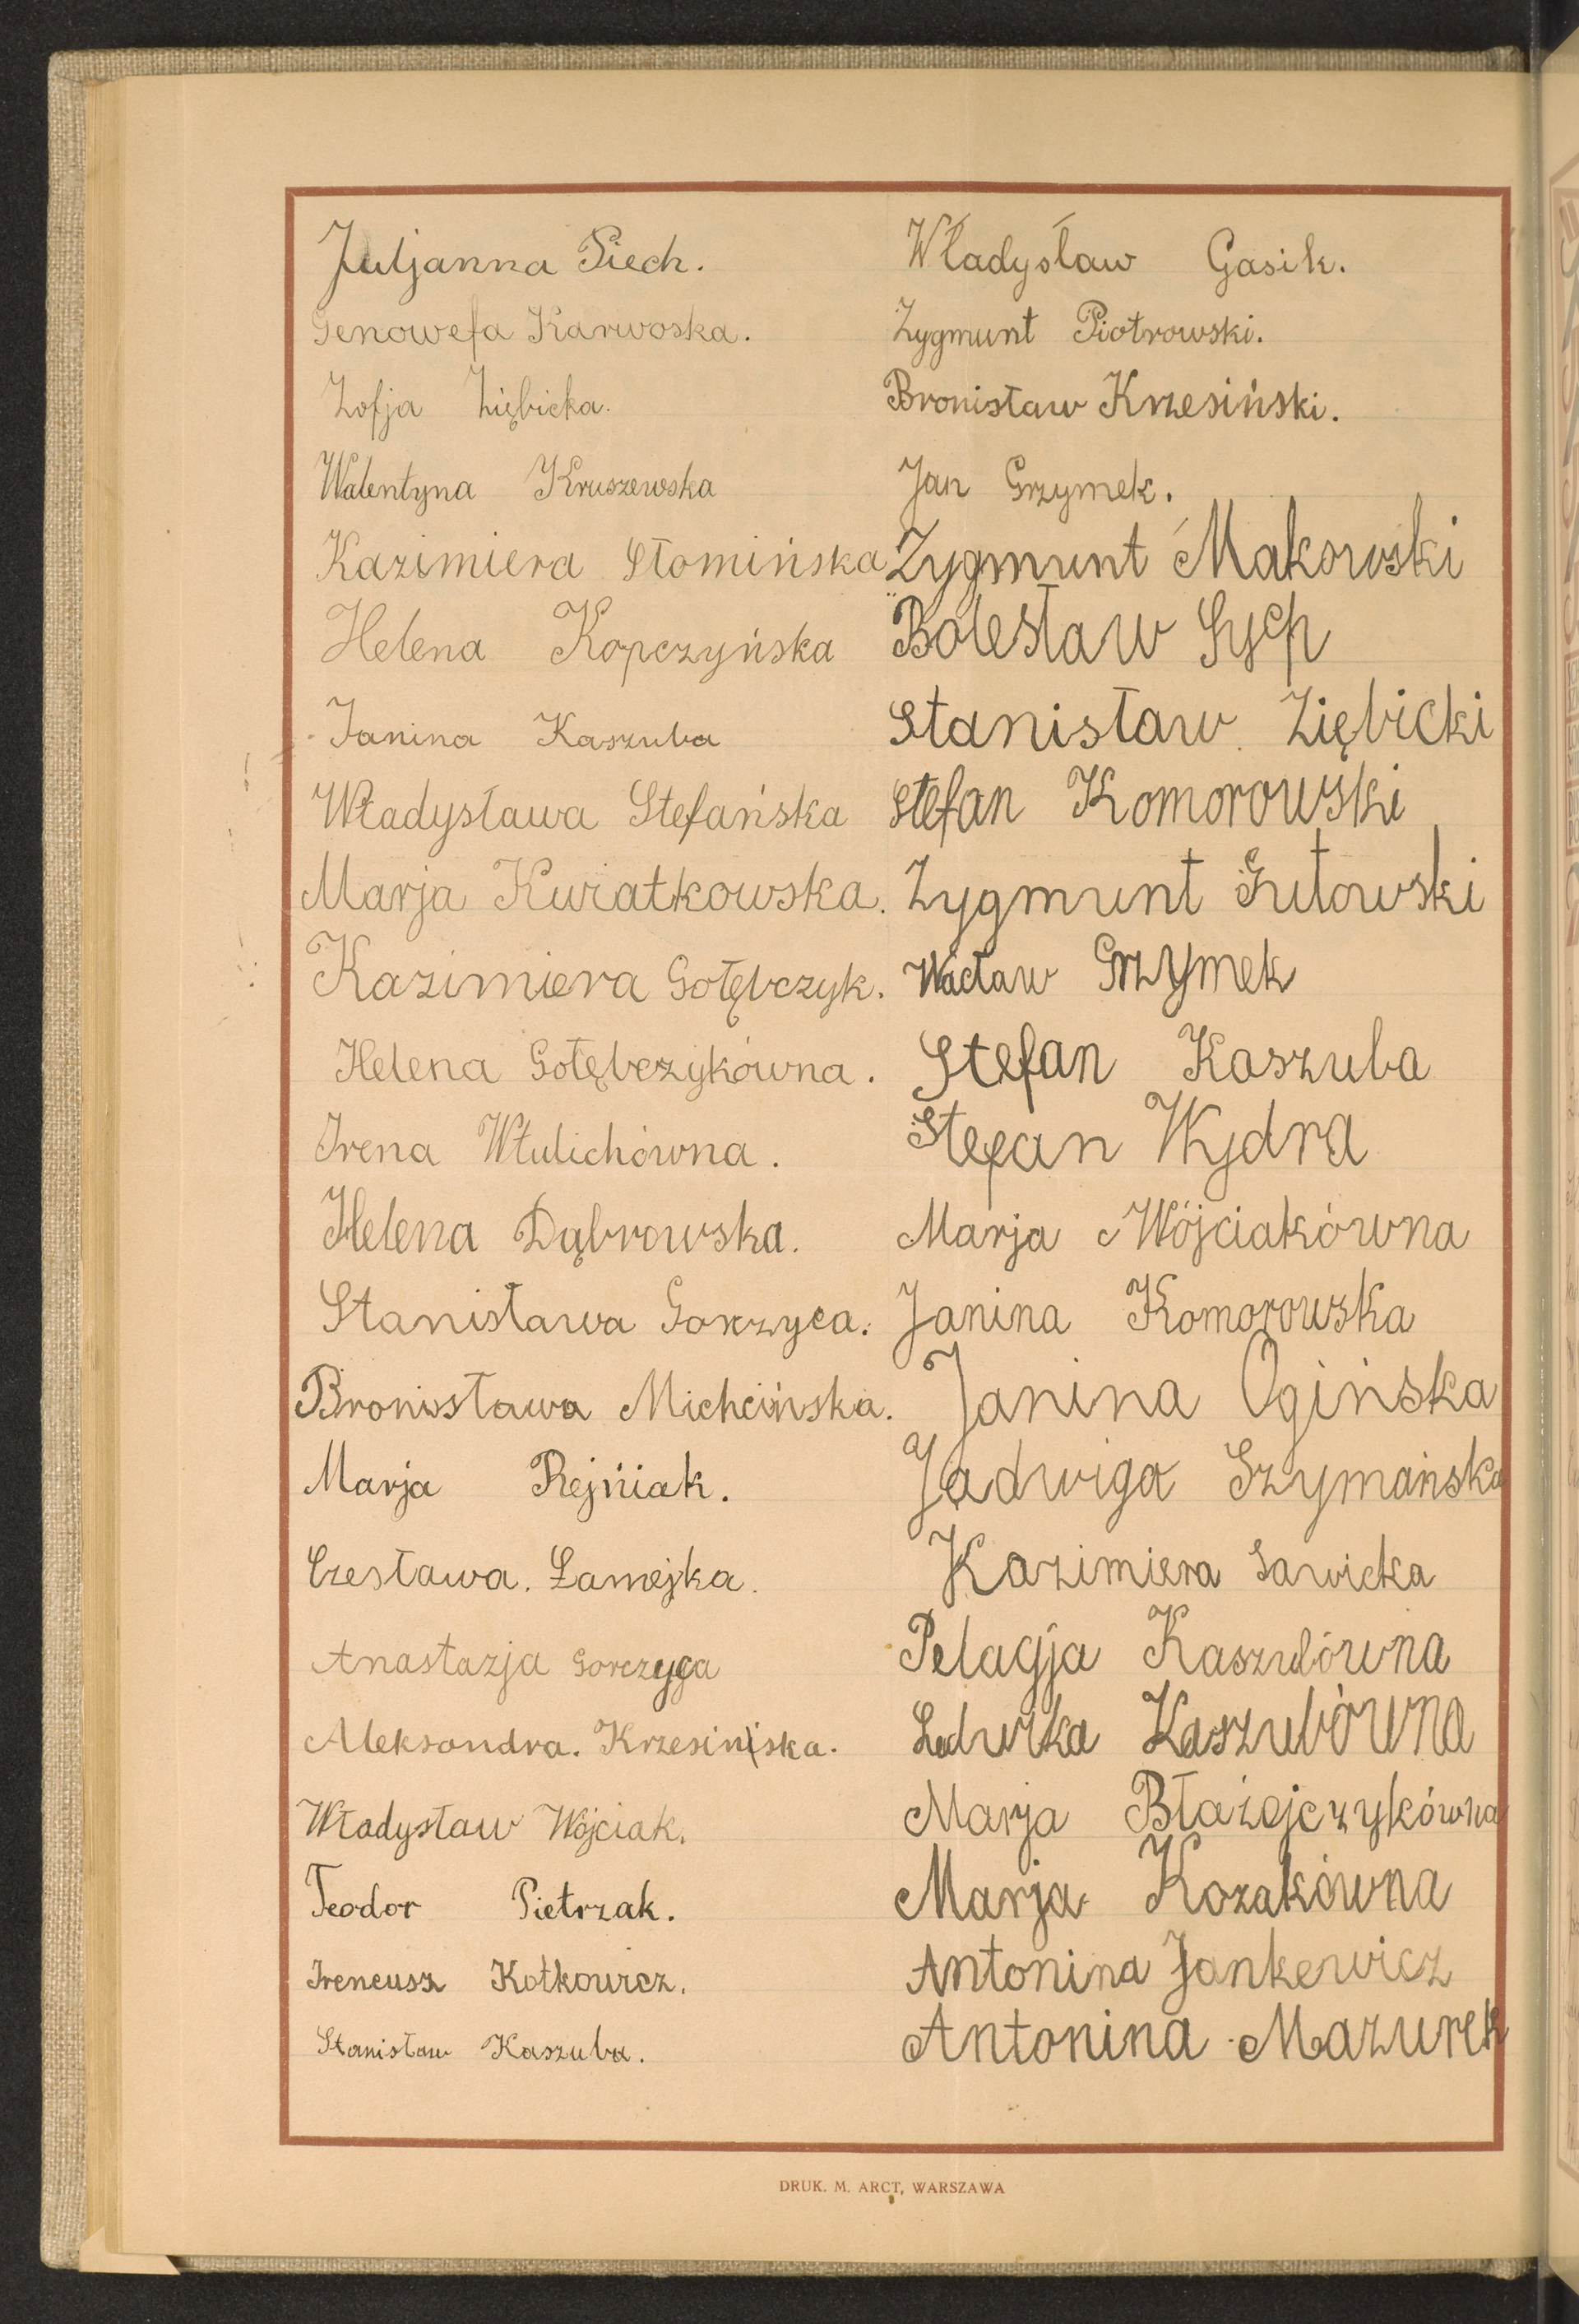 Juljanna Piech.
Genowefa Karwoska.
Zofja Ziębicka.
Walentyna Kruszewska
Kazimiera Słomińska
Helena Kopczyńska
Janina Kaszuba
Władysława Stefańska
Marja Kwiatkowska.
Kazimiera Gołębczyk.
Helena Gołębczykówna.
Irena Wtulichówna.
Helena Dąbrowska.
Stanisława Gorzyca.
Bronisława Michcińska.
Marja Rejniak.
Czesława. Łamejka.
Anastazja Gorczyca
Aleksandra. Krzesińska.
Władysław Wójciak.
Teodor Pietrzak.
Ireneusz Kotkowicz.
Stanisław Kaszuba.
Władysław Gasik.
Zygmunt Piotrowski.
Bronisław Krzesiński.
Jan Grzymek.
Zygmunt Makowski
Bolesław Sych
Stanisław Ziębicki
Stefan Komorowski
Zygmunt Gutowski
Wacław Grzymek
Stefan Kaszuba
Stefan Wydra
Marja Wójciakówna
Janina Komorowska
Janina Ogińska
Jadwiga Szymańska
Kazimiera Sawicka
Pelagja Kaszubówna
Ludwika Kaszubówna
Marja Błażejczykówna
Marja Kozakówna
Antonina Jankewicz
Antonina Mazurek
DRUK. M. ARCT, WARSZAWA